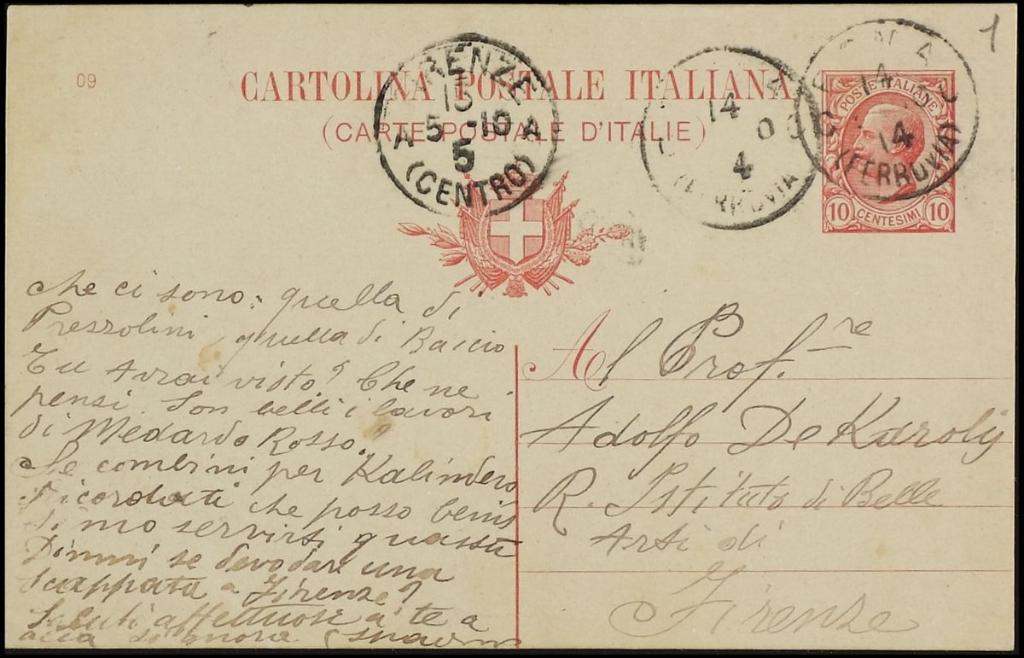 1
09
CARTOLINA POSTALE ITALIANA
(CARTE POSTALE D'ITALIE)
FIRENZE
15
A 5 - 10 A
5
(CENTRO)
14
4
(FERROVIA
14
14
(FERROVIA)
POSTE ITALIANE
10 CENTESIMI 10
che ci sono: quella di
Prezzolini, quella di Baccio
Tu avrai visto? Che ne
pensi. Son belli i lavori
di Medardo Rosso?
Se combini per Kalindero
ricordati che posso benis
simo servirti quassù
Dimmi se devo dare una
scappata a Firenze?
Saluti affettuosi a te a
alla Signora
Al Prof.re
Adolfo De Karoly
R. Istituto di Belle
Arti di
Firenze